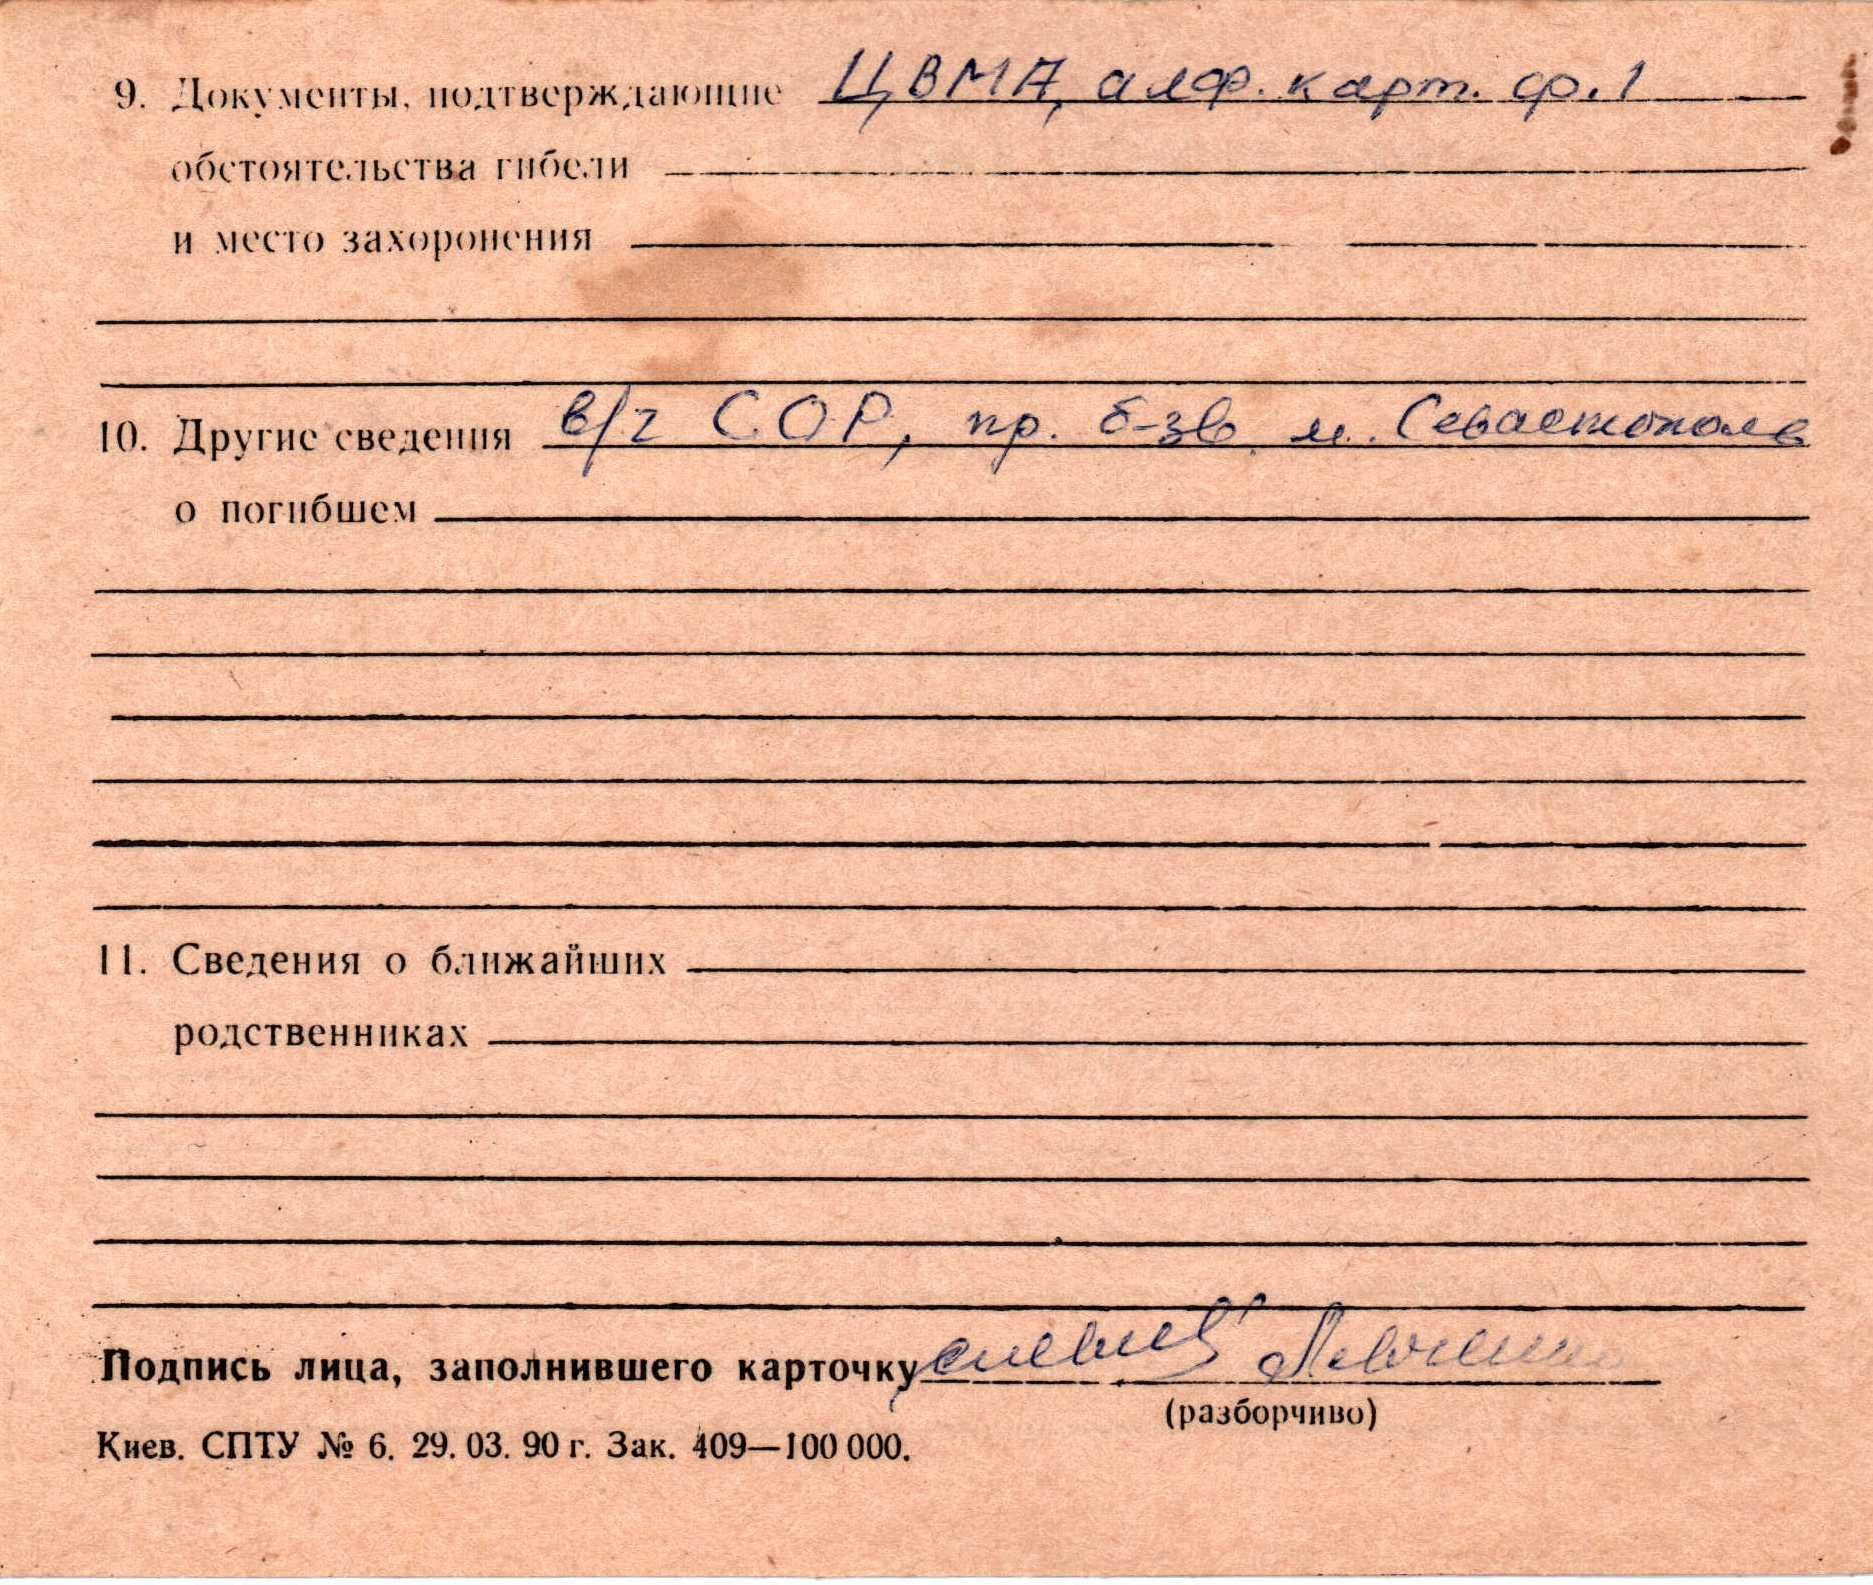 9. Документы, подтверждающие ЦВМА, алф. карт. ф. 1
обстоятельства гибели
и место захоронения
10. Другие сведения в/ч СОР, пр. б-зв. м. Севастополь
о погибшем
11. Сведения о ближайших
родственниках
Подпись лица, заполнившего карточку
(разборчиво)
Киев. СПТУ № 6. 29. 03. 90 г. Зак. 409—100 000.